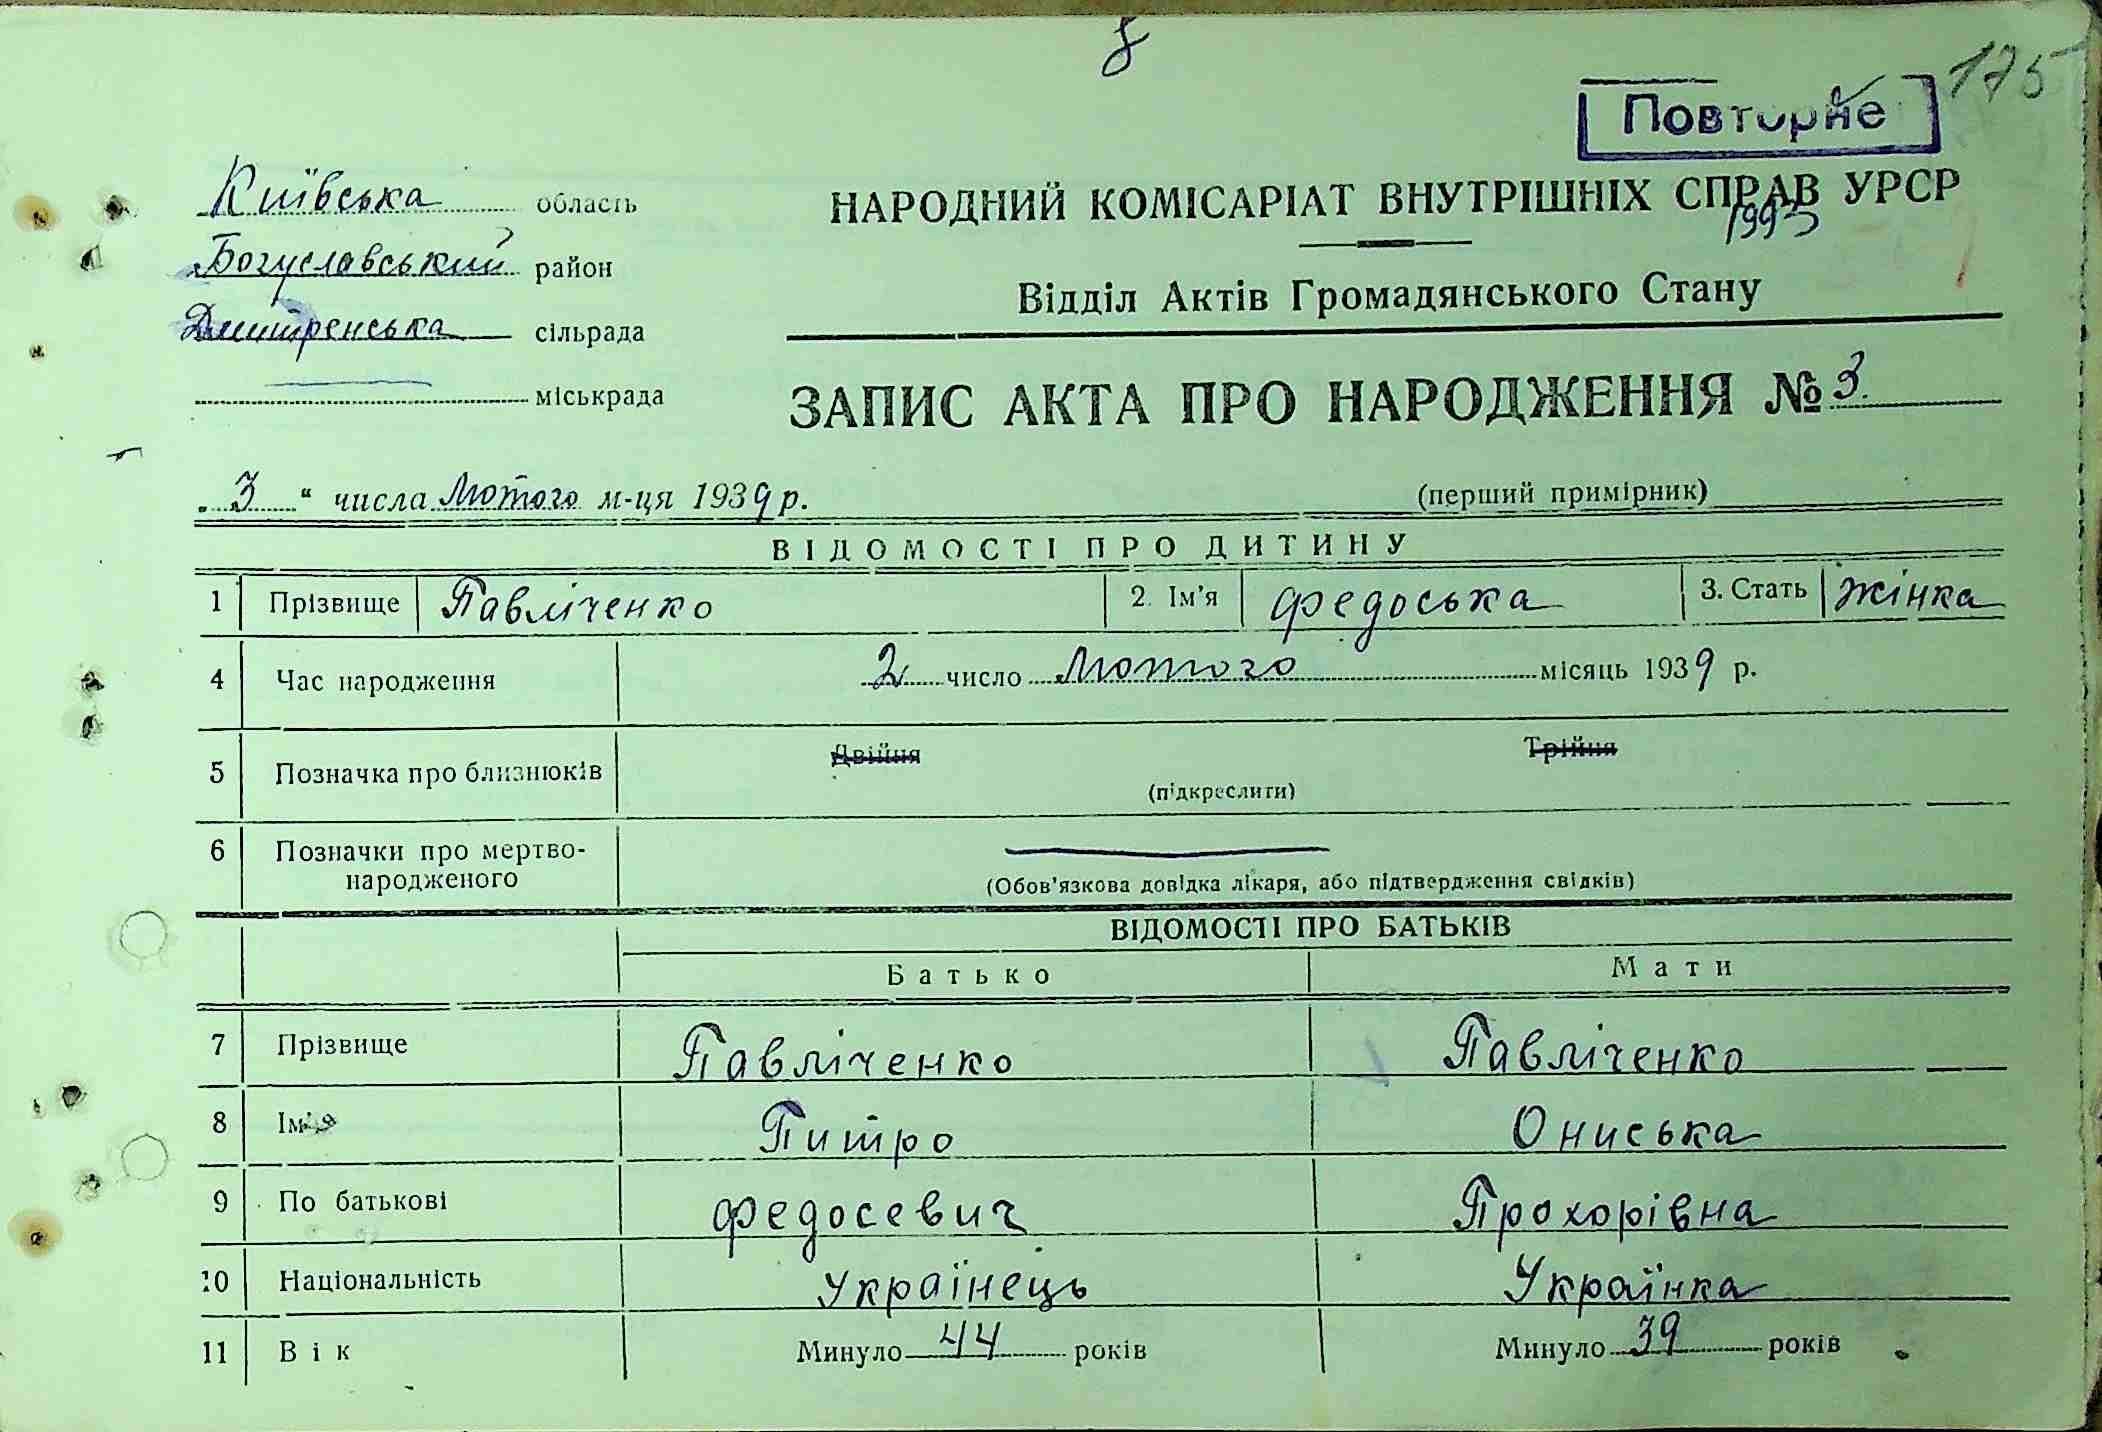 175
Повторне
Київська область
НАРОДНИЙ КОМІСАРІАТ ВНУТРІШНІХ СПРАВ УРСР
1993
Богуславський район
Відділ Актів Громадянського Стану
Дмитренська сільрада
міськрада
ЗАПИС АКТА ПРО НАРОДЖЕННЯ № 3.
„ 3 “ числа Лютого м-ця 1939 р. (перший примірник)
ВІДОМОСТІ ПРО ДИТИНУ
1 Прізвище Павліченко 2. Ім'я Федоська 3. Стать жінка
4 Час народження 2 число Лютого місяць 1939 р.
5 Позначка про близнюків Двійня Трійня
(підкреслити)
6 Позначки про мертво-
народженого
(Обов'язкова довідка лікаря, або підтвердження свідків)
ВІДОМОСТІ ПРО БАТЬКІВ
Батько Мати
7 Прізвище Павліченко Павліченко
8 Ім'я Питро Ониська
9 По батькові Федосевич Прохорівна
10 Національність Українець Українка
11 Вік Минуло 44 років Минуло 39 років